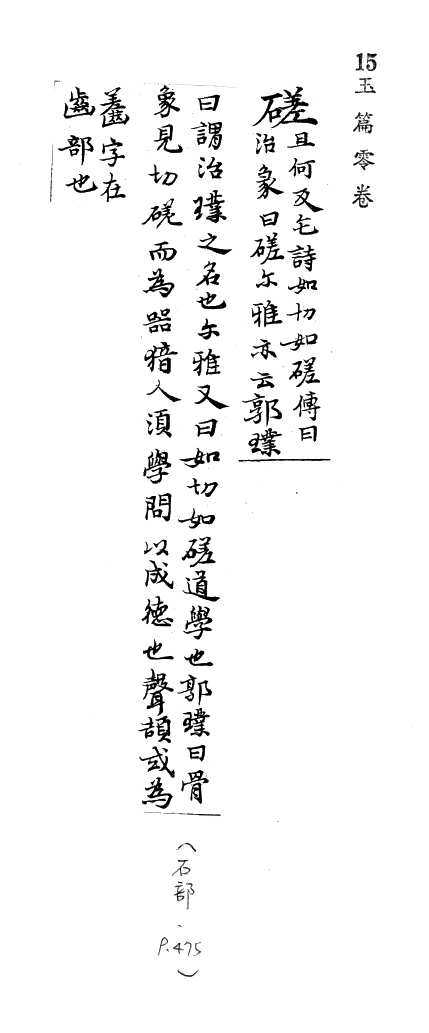 15 玉篇零卷
磋 且何反毛詩如切如磋傳曰
治象曰磋尓雅亦云郭璞
曰謂治璞之名也尓雅又曰如切如磋道學也郭璞曰骨
象見切磋而為噐猶人湏學問以成德也聲類或為
齹字在
齒部也
(石部、P.475)